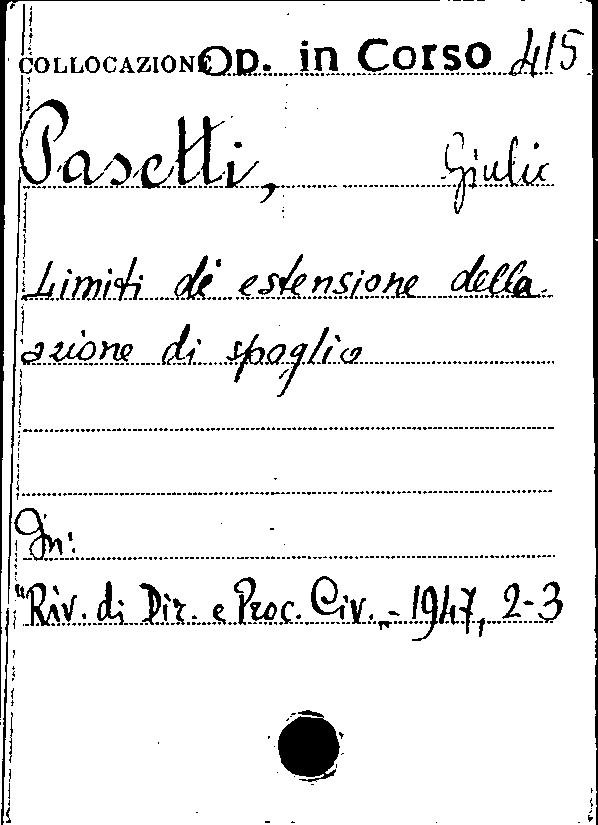 COLLOCAZIONE Op. in Corso 415
Pasetti, Giulio
Limiti di estensione della
azione di spoglio
In:
"Riv. di Dir. e Proc. Civ." - 1947, 2-3